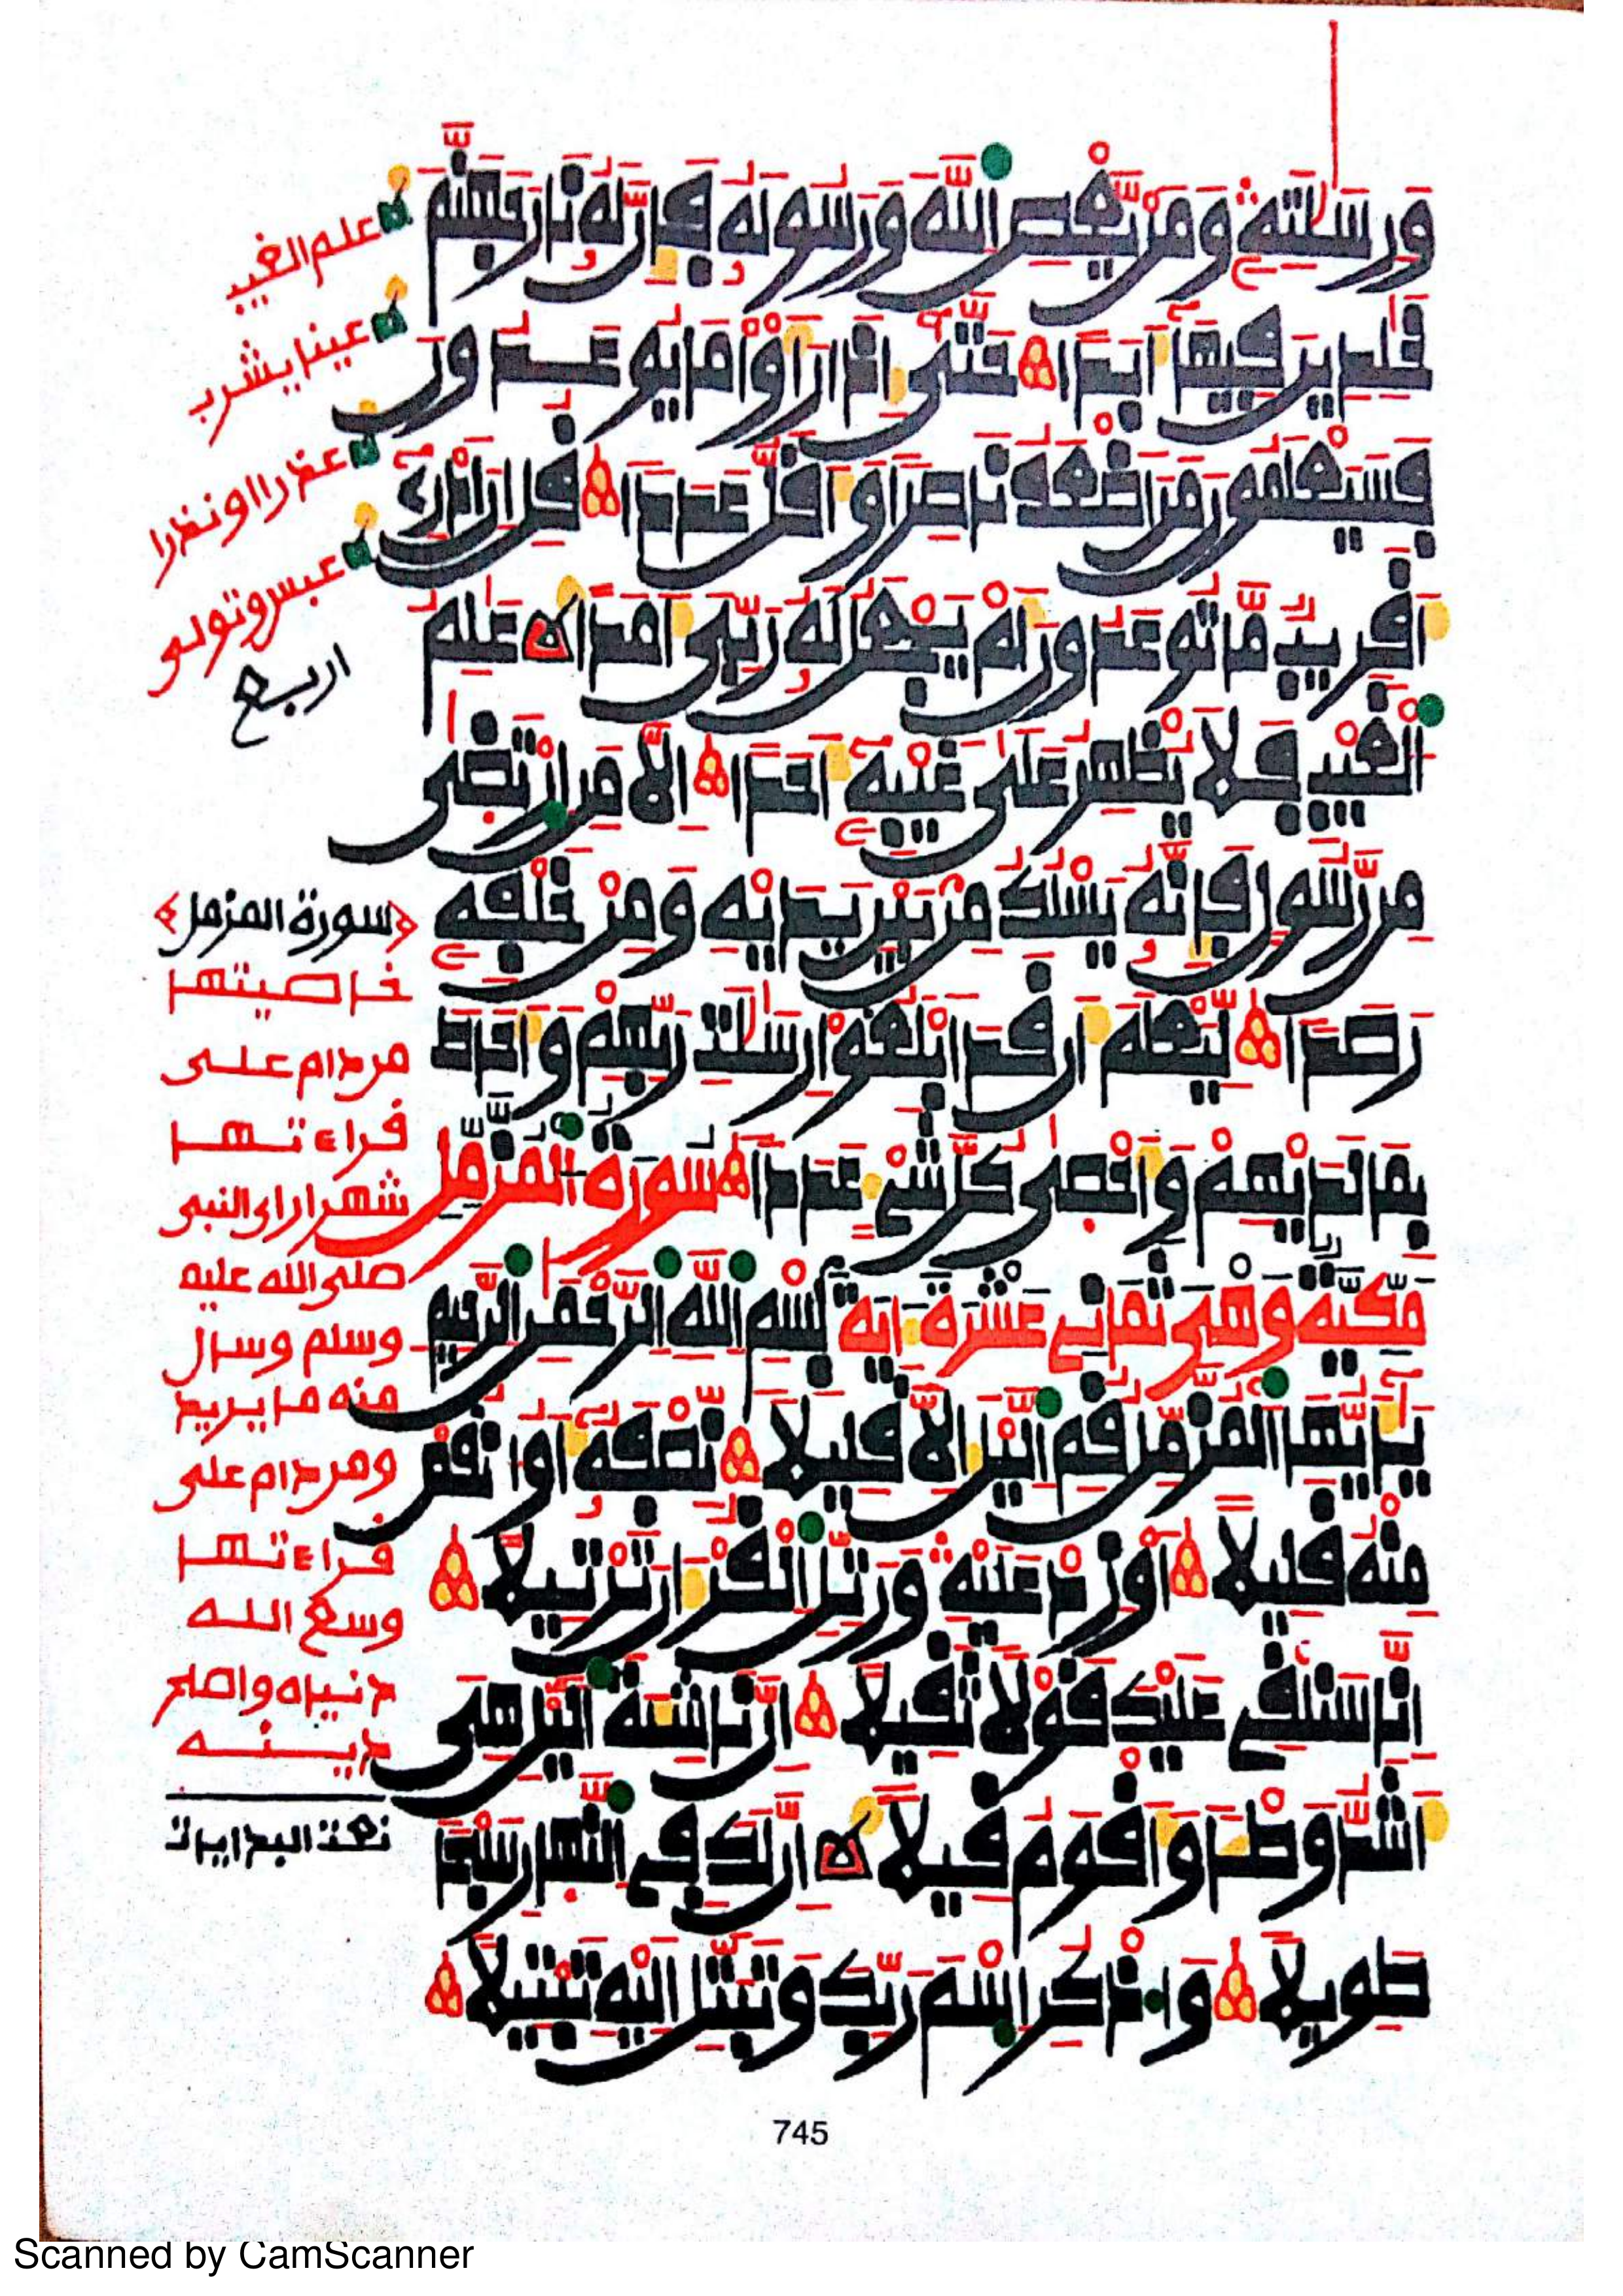 وَرِسَٰلَٰتِهِۦ وَمَنْ يَّعْصِ اِ۬للَّهَ وَرَسُولَهُۥ فَإِنَّ لَهُۥ نَارَ جَهَنَّمَ
خَٰلِدِينَ فِيهَآ أَبَدًا حَتَّىٰٓ إِذَا رَأَوْاْ مَا يُوعَدُونَ
فَسَيَعْلَمُونَ مَنْ أَضْعَفُ نَاصِرًا وَأَقَلُّ عَدَدًا قُلْ إِنْ أَدْرِےٓ
أَقَرِيبٌ مَّا تُوعَدُونَ أَمْ يَجْعَلُ لَهُۥ رَبِّىَ أَمَدًا عَٰلِمُ
اُ۬لْغَيْبِ فَلَا يُظْهِرُ عَلَىٰ غَيْبِهِۦٓ أَحَدًا إِلَّا مَنِ اِ۪رْتَضَىٰ
مِن رَّسُولٍ فَإِنَّهُۥ يَسْلُكُ مِنۢ بَيْنِ يَدَيْهِ وَمِنْ خَلْفِهِۦ
رَصَدًا لِّيَعْلَمَ أَن قَدَ اَبْلَغُواْ رِسَٰلَٰتِ رَبِّهِمْ وَأَحَاطَ
بِمَا لَدَيْهِمْ وَأَحْصَىٰ كُلَّ شَےْءٍ عَدَدًا سُورَةُ الْمُزَّمِّل
مَكِّيَّةٌ وَهِىَ ثَمَانِى عَشْرَةَ اٰيَةً بِسْمِ اِ۬للَّهِ اِ۬لرَّحْمَٰنِ اِ۬لرَّحِيمِ
يَٰٓأَيُّهَا اَ۬لْمُزَّمِّلُ قُمِ اِ۬لَّيْلَ إِلَّا قَلِيلًا نِّصْفَهُۥٓ أَوُ اُ۟نقُصْ
مِنْهُ قَلِيلًا أَوْ زِدْ عَلَيْهِ وَرَتِّلِ اِ۬لْقُرْءَانَ تَرْتِيلًا
إِنَّا سَنُلْقِے عَلَيْكَ قَوْلًا ثَقِيلًا إِنَّ نَاشِئَةَ اَ۬لَّيْلِ هِىَ
أَشَدُّ وَطْـًٔا وَأَقْوَمُ قِيلًا إِنَّ لَكَ فِے اِ۬لنَّهَارِ سَبْحًا
طَوِيلًا وَاذْكُرِ اِ۪سْمَ رَبِّكَ وَتَبَتَّلِ اِلَيْهِ تَبْتِيلًا
علم الغيب
عينا يشرب
عذرا او نذرا
عبس وتولى
اربع
سورة المزمل
خاصيتها
من دام على
قراءتها
شهرا راى النبى
صلى الله عليه
وسلم وسال
منه ما يريد
ومن دام على
قراءتها
وسع الله
دنياه واصلح
دينه
745
Scanned by CamScanner